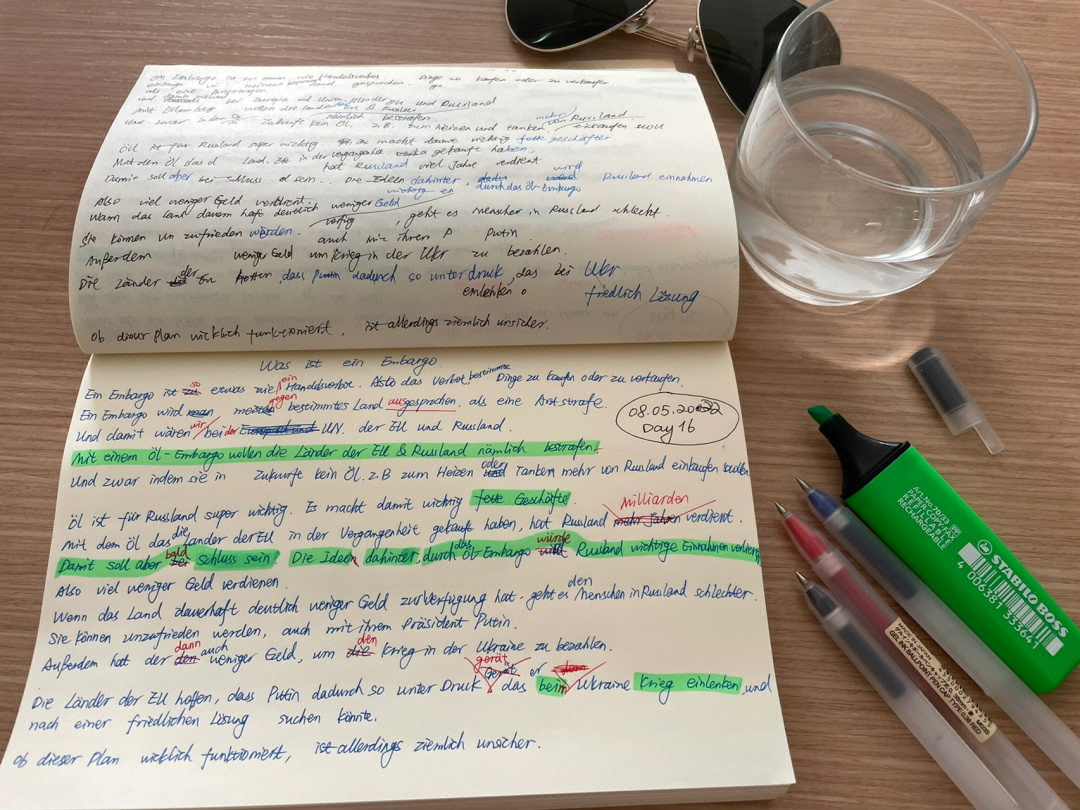 ein Embargo ist zu man wie Handelsverbot. Dinge zu kaufen oder zu verkaufen
als eine
bei Europa und Union. Mit der EU und Russland
wollen die Länder EU & Russl
nämlich bestrafen.
mehr
Und zwar in dem Zukunft kein Öl. z.B. zum heizen und tanken, von Russland einkaufen soll
Öll ist für Russland super wichtig. Es macht damit wichtig fette geschäfte
Mit dem Öl das d Land. EU in der vergangenheit gekauft haben,
hat Russland viel Jahre verdient
Damit soll aber bei Schluss el sein... Die Ideen dahinter, durch das Öl-Embargo wird Russland einnahmen
wichtig en
Also viel weniger Geld verdient.
Wann das Land dauern haft deutlich weniger Geld
verfüg, geht es menscher in Russland schlecht.
Sie können un zufrieden werden. auch mit ihren P Putin.
Außerdem weniger Geld um Krieg in der Ukr zu bezahlen.
Die Länder der EU hoffen, dass Putin dadurch so unter druck, das bei Ukr
einlenken. friedlich Lösung
Ob dieser Plan wicklich funktioniert, ist allerdings ziemlich unsicher.
Was ist ein Embargo.
Ein Embargo ist so etwas wie ein Handelsverbot. Also das Verbot, bestimmte Dinge zu kaufen oder zu verkaufen.
Ein Embargo wird gegen bestimmtes Land ausgesprochen. als eine Art strafe.
Und damit wären wir bei der UN. der EU und Russland.
08.05.2022
Day 16
Mit einem Öl-Embargo wollen die Länder der EU & Russland nämlich bestrafen.
Und zwar indem sie in Zukunft kein Öl. z.B zum Heizen oder Tanken mehr von Russland einkaufen sollen
Öl ist für Russland super wichtig. Es macht damit wichtig fette Geschäfte.
Milliarden
Mit dem Öl das die Länder der EU in der Vergangenheit gekauft haben, hat Russland mehr Jahren verdient.
Damit soll aber bald schluss sein. Die Ideen dahinter, durch das Öl-Embargo würde Russland wichtige Einnahmen verlieren
Also viel weniger Geld verdienen.
Wenn das Land dauerhaft deutlich weniger Geld zur Verfügung hat. geht es den Menschen in Russland schlechter.
Sie können unzufrieden werden, auch mit ihrem Präsident Putin.
Außerdem hat der dann auch weniger Geld, um den Krieg in der Ukraine zu bezahlen.
Die Länder der EU hoffen, dass Putin dadurch so unter Druck gerät das er beim Ukraine Krieg einlenken und
nach einer friedlichen Lösung suchen könnte.
ob dieser Plan wicklich funktioniert, ist allerdings ziemlich unsicher.
Art.No.70/33
PAPER, COPY, FAX
REFILL
RECHARGEABLE
STABILO BOSS
4 006381 333641
GEL INK BALLPOINT PEN CAP TYPE 0.38 RED